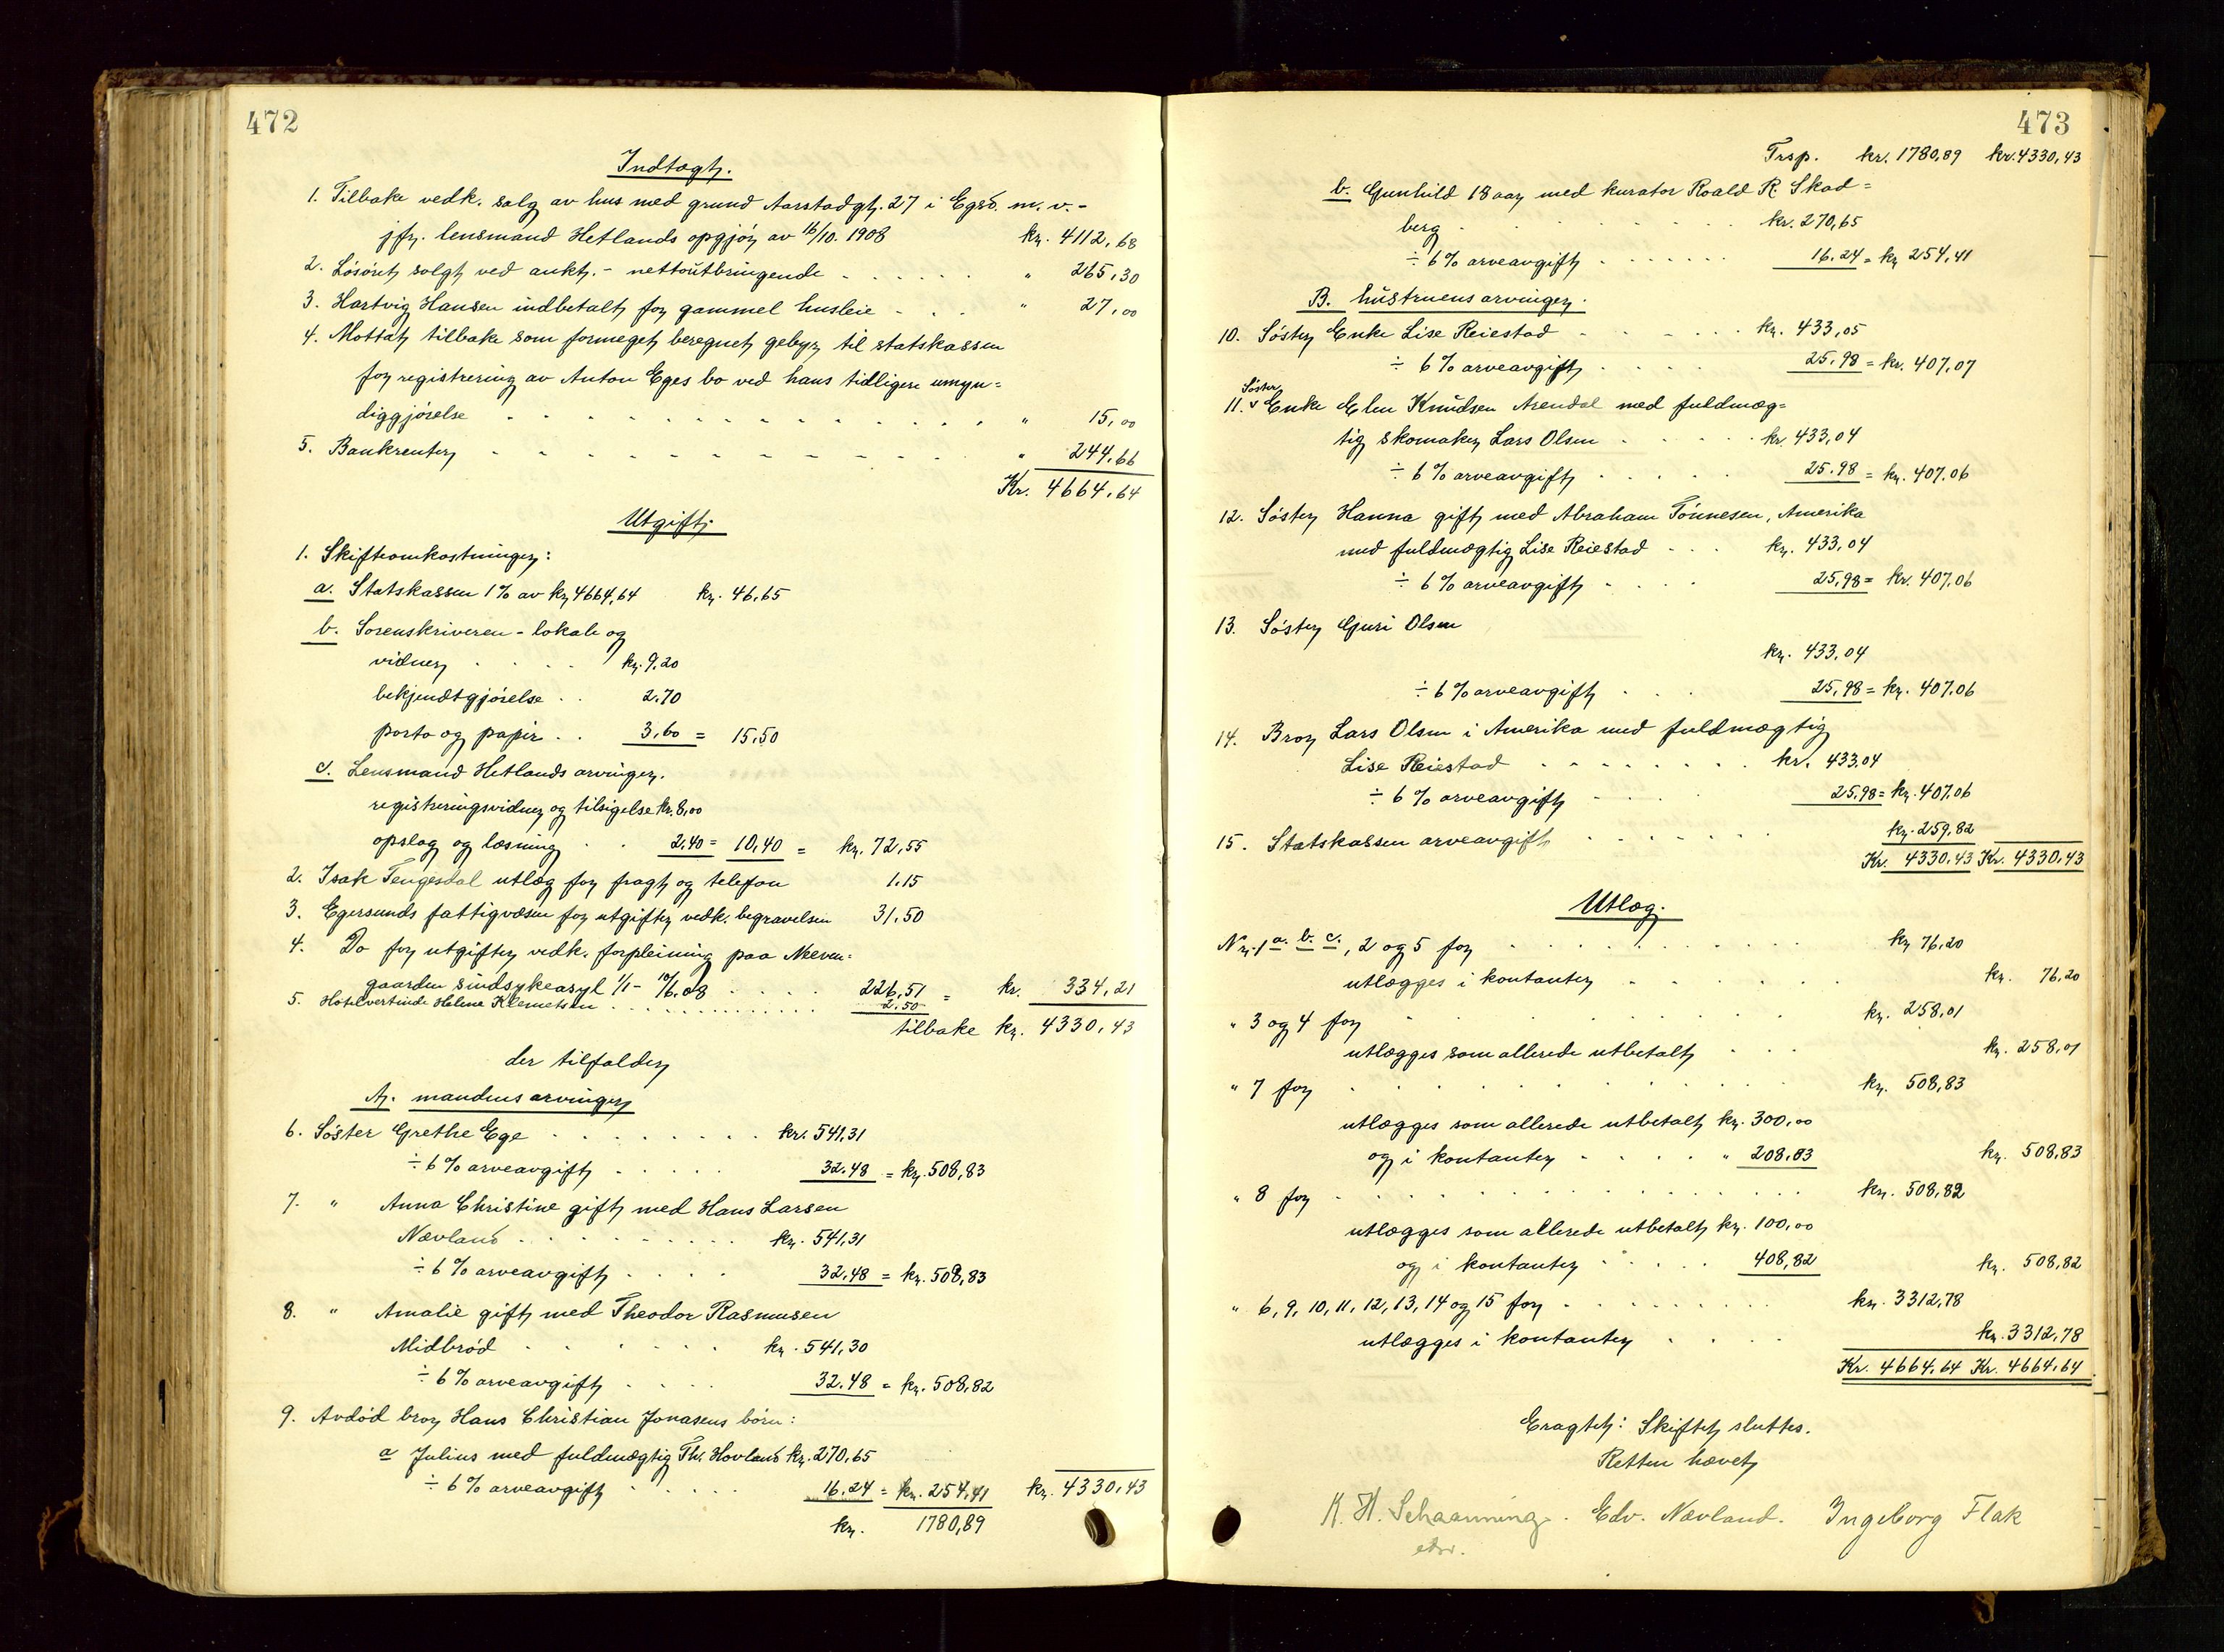 472
Indtægt.
1. Tilbake vedk. salg av hus med grund Aarstadgt. 27 i Egsd. m. v. -
jfr. lensmand Hetlands opgjör av 16/10. 1908 kr. 4112,68
2. Lösöret solgt ved aukt. - nettoutbringende . . . . . . " 265,30
3. Hartvig Hansen indbetalt for gammel husleie . . . " 27,00
4. Mottat tilbake som formeget beregnet gebyr til statskassen
for registrering av Anton Eges bo ved hans tidligere umyn=
diggjörelse . . . . . . . . . . . . " 15,00
5. Bankrenter . . . . . . . . . . " 244,66
Kr. 4664,64
Utgift.
1. Skifteomkostninger:
a. Statskassen 1% av kr 4664,64 kr. 46,65
b. Sorenskriveren - lokale og
vidner . . . . kr. 9.20
bekjendtgjörelse . . 2.70
porto og papir . . 3,60 = 15,50
c. Lensmand Hetlands arvinger.
registreringsvidner og tilsigelse kr. 8,00
opslag og læsning . . 2,40 = 10,40 = kr. 72,55
2. Isak Tengesdal utlæg for fragt og telefon 1.15
3. Egersunds fattigvæsen for utgifter vedk. begravelsen 31.50
4. Do for utgifter vedk. forpleining paa Neeven=
gaarden sindsykeasyl 1/1 - 10/6.08 . . . . 226,51 = kr. 334,21
5. Hotelvertinde Helene Klemetsen . . . . . . . . . . . . . 2.50
tilbake kr. 4330,43
der tilfalder
A. mandens arvinger
6. Söster Grethe Ege . . . . . . . . kr. 541,31
÷ 6% arveavgift . . . . . 32.48 = kr. 508,83
7. " Anna Christine gift med Hans Larsen
Nævland . . . . . . . . . kr. 541,31
÷ 6% arveavgift . . . . 32,48 = kr. 508,83
8. " Amalie gift med Theodor Rasmusen
Midbröd . . . . . . kr. 541,30
÷ 6% arveavgift . . . . 32.48 = kr. 508,82
9. Avdöd bror Hans Christian Jonasens börn:
a Julius med fuldmægtig Th. Hovland kr. 270,65
÷ 6% arveavgift . . . . . 16,24 = kr. 254,41 kr. 4330,43
kr. 1780,89
473
Trsp. kr. 1780,89 kr. 4330,43
b. Gunhild 18 aar med kurator Roald R Skad=
berg . . . . . . . kr. 270,65
÷ 6% arveavgift . . . . . . 16.24 = kr 254,41
B. hustruens arvinger.
10. Söster Enke Lise Reiestad . . . . . . kr. 433,05
÷ 6% arveavgift . . . . 25,98 = kr. 407,07
Söster
11. v Enke Elen Knudsen Arendal med fuldmæg=
tig skomaker Lars Olsen . . . . . kr. 433,04
÷ 6% arveavgift . . . . . 25.98 = kr. 407.06
12. Söster Hanna gift med Abraham Tönnesen, Amerika
med fuldmægtig Lise Reiestad . . . kr. 433,04
÷ 6% arveavgift . . . . 25,98 = kr. 407,06
13. Söster Guri Olsen
kr. 433,04
÷ 6% arveavgift . . . 25,98 = kr. 407.06
14. Bror Lars Olsen i Amerika med fuldmægtig
Lise Reiestad . . . . . . . . kr. 433.04
÷ 6% arveavgift . . . . 25.98 = kr. 407.06
15. Statskassen arveavgift . . . . . . . kr. 259,82
Kr. 4330,43 Kr. 4330,43
Utlæg.
Nr. 1 a. b. c., 2 og 5 for . . . . . . . . . kr 76,20
utlægges i kontanter . . . . . . kr. 76,20
" 3 og 4 for . . . . . . . . . . kr. 258,01
utlægges som allerede utbetalt . . . kr. 258,01
" 7 for . . . . . . . . . . . kr. 508,83
utlægges som allerede utbetalt kr. 300,00
og i kontanter . . . . . " 208,83 kr. 508,83
" 8 for . . . . . . . . . . . . kr. 508,82
utlægges som allerede utbetalt kr. 100,00
og i kontanter . . . . 408,82 kr. 508,82
" 6, 9, 10, 11, 12, 13, 14 og 15 for . . . . . . . . kr. 3312,78
utlægges i kontanter . . . . kr. 3312,78
Kr. 4664,64 Kr. 4664,64
Eragtet: Skiftet sluttes.
Retten hævet
K. H. Schaanning. Edv. Nævland. Ingeborg Flak